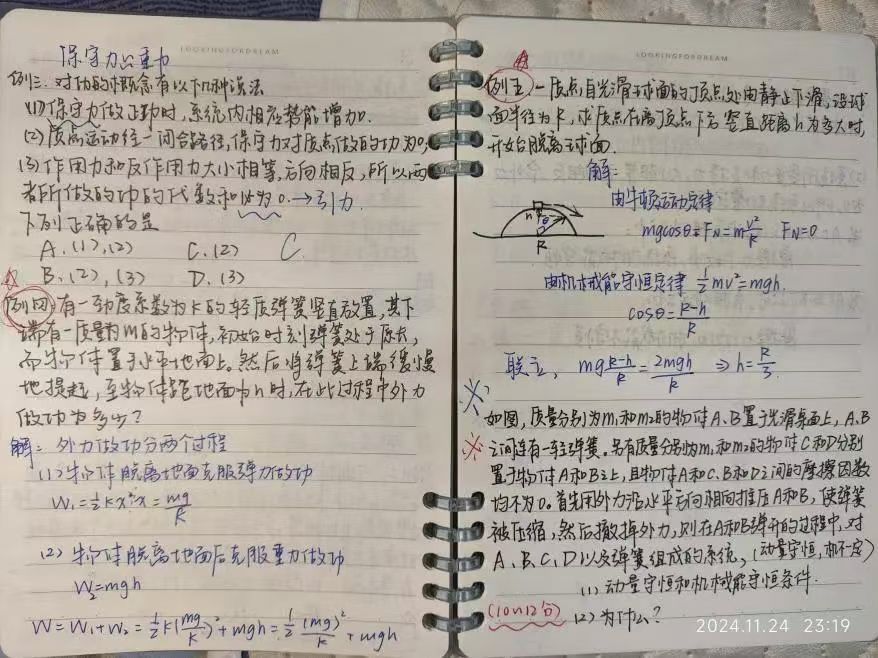 LOOKINGFORDREAM
保守力必重力
例三. 对功的概念有以下几种说法
(1)保守力做正功时,系统内相应势能增加.
(2)质点运动经一闭合路径,保守力对质点做的功为0,
(3)作用力和反作用力大小相等,方向相反,所以两
者所做的功的代数和必为0.→引力.
下列正确的是
A.(1),(2) C.(2) C.
B.(2),(3) D.(3)
例四:有一劲度系数为k的轻质弹簧竖直放置,其下
端有一质量为m的物体,初始时刻弹簧处于原长,
而物体置于水平地面上。然后将弹簧上端缓慢
地提起,至物体距地面为h时,在此过程中外力
做功为多少?
解:外力做功分两个过程
(1)物体脱离地面克服弹力做功
W₁=½kx² x=mg/k
(2)物体脱离地面后克服重力做功
W₂=mgh
W=W₁+W₂=½k(mg/k)²+mgh=½(mg)²/k+mgh
LOOKINGFORDREAM
例五 一质点,自光滑球面的顶点处由静止下滑,设球
面半径为R,求质点在离顶点下方竖直距离h为多大时,
开始脱离球面.
解:
由牛顿运动定律
h θ R
mgcosθ-F_N=m v²/R F_N=0
由机械能守恒定律 ½mv²=mgh.
cosθ=(R-h)/R
联立, mg(R-h)/R=2mgh/R ⇒h=R/3.
如图,质量分别为m₁和m₂的物体A、B置于光滑桌面上,A、B
之间连有一轻弹簧。另有质量分别为m₁和m₂的物体C和D分别
置于物体A和B之上,且物体A和C、B和D之间的摩擦因数
均不为0。首先用外力沿水平方向相向推压A和B,使弹簧
被压缩,然后撤掉外力,则在A和B弹开的过程中,对
A、B、C、D以及弹簧组成的系统, (动量守恒,机不一定)
(1)动量守恒和机械能守恒条件.
(10月12旬) (2)为什么?
2024.11.24 23:19